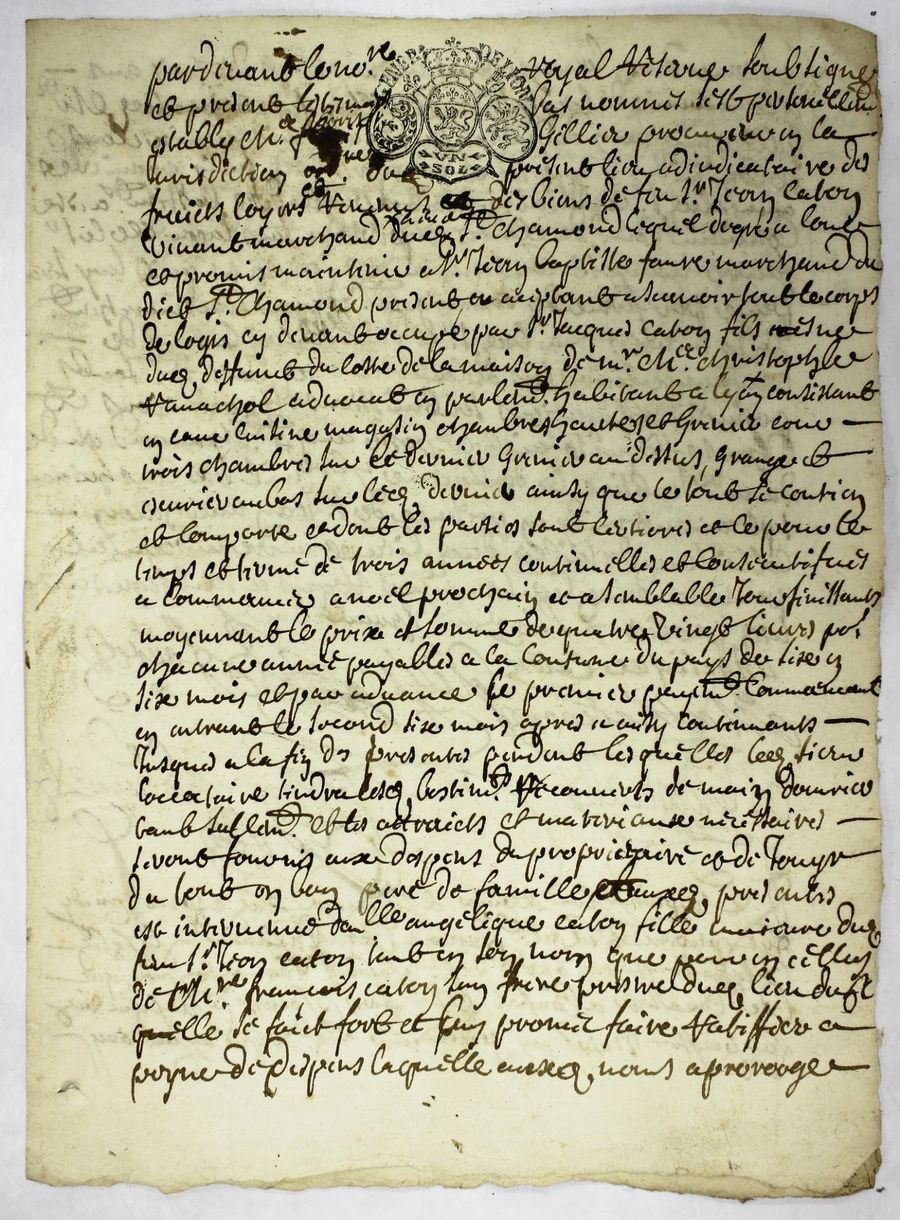 pardevant le no.re royal reservé soubsigné
et presents les tesmoings bas nommés s'est personnellem.t
estably M.e Gillier procureur en la
jurisdiction dud. present lieu adjudicataire des
fruicts loyers revenus des biens de feu s.r Jean caton
vivant marchand dud. S.t Chamond lequel degré a loué
et promis maintenir a s.r Jean baptiste faure marchand du
dict S.t Chamond present et acceptant a scavoir tout le corps
de logis cy devant occupé par s.r Jacques caton fils
dud. deffunct du costé de la maison de m.r M.e christophle
ranachol advocat en parlem.t habitant a lyon consistant
en cave cuisine magasin chambres hautes et grenier
trois chambres sur le dernier grenier au dessus, grange et
escurier au bas sur led. dernier ainsy que le tout se contien
et comporte et dont les parties sont et ce pour le
temps et terme de trois années continuelles et consecutifves
a commancer a noel prochain et a semblable jour finissants
moyennant le prix et somme de quatre vingt livres po.r
chacune année payables a la coutume du pays de six en
six mois et par advance le premier payem.t commancent
en entrant le second six mois apres et ainsy continuants
jusques a la fin des presentes pendant lesquelles led. sieur
loccataire tiendra lesd. bastim.ts recouverts de main d'ouvrier
tant sullem.t et les attraicts et materiaux necessaires
seront fournis aux despens du proprietaire et de jouyr
du tout en bon pere de famille et auxd. presentes
est intervenue dam.lle angelique caton fille dud.
feu s.r Jean caton tant en son nom que pour en celluy
de M.re francois caton son frere dud. lieu
quelle se faict fort et promet faire rattiffier a
peyne de despens laquelle auxd. noms a prorogé